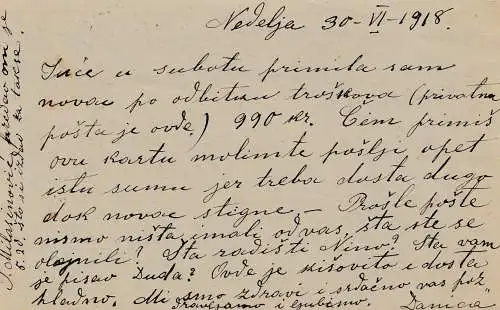 Nedelja 30-VI-1918.
Juče u subotu primila sam
novac po odbitku troškova (privatna
pošta je ovde) 990 kr. Čim primiš
ovu kartu molimte pošlji opet
istu sumu jer treba dosta dugo
dok novac stigne. — Prošle pošte
nismo ništa imali od vas, šta ste se
olenjili? Šta radišti Nino? Šta vam
je pisao Duda? Ovde je kišovito i dosta
hladno. Mi smo zdravi i srdačno vas poz
dravljamo i ljubimo. Danica
predao om je
5.20 što si izdao za takse.